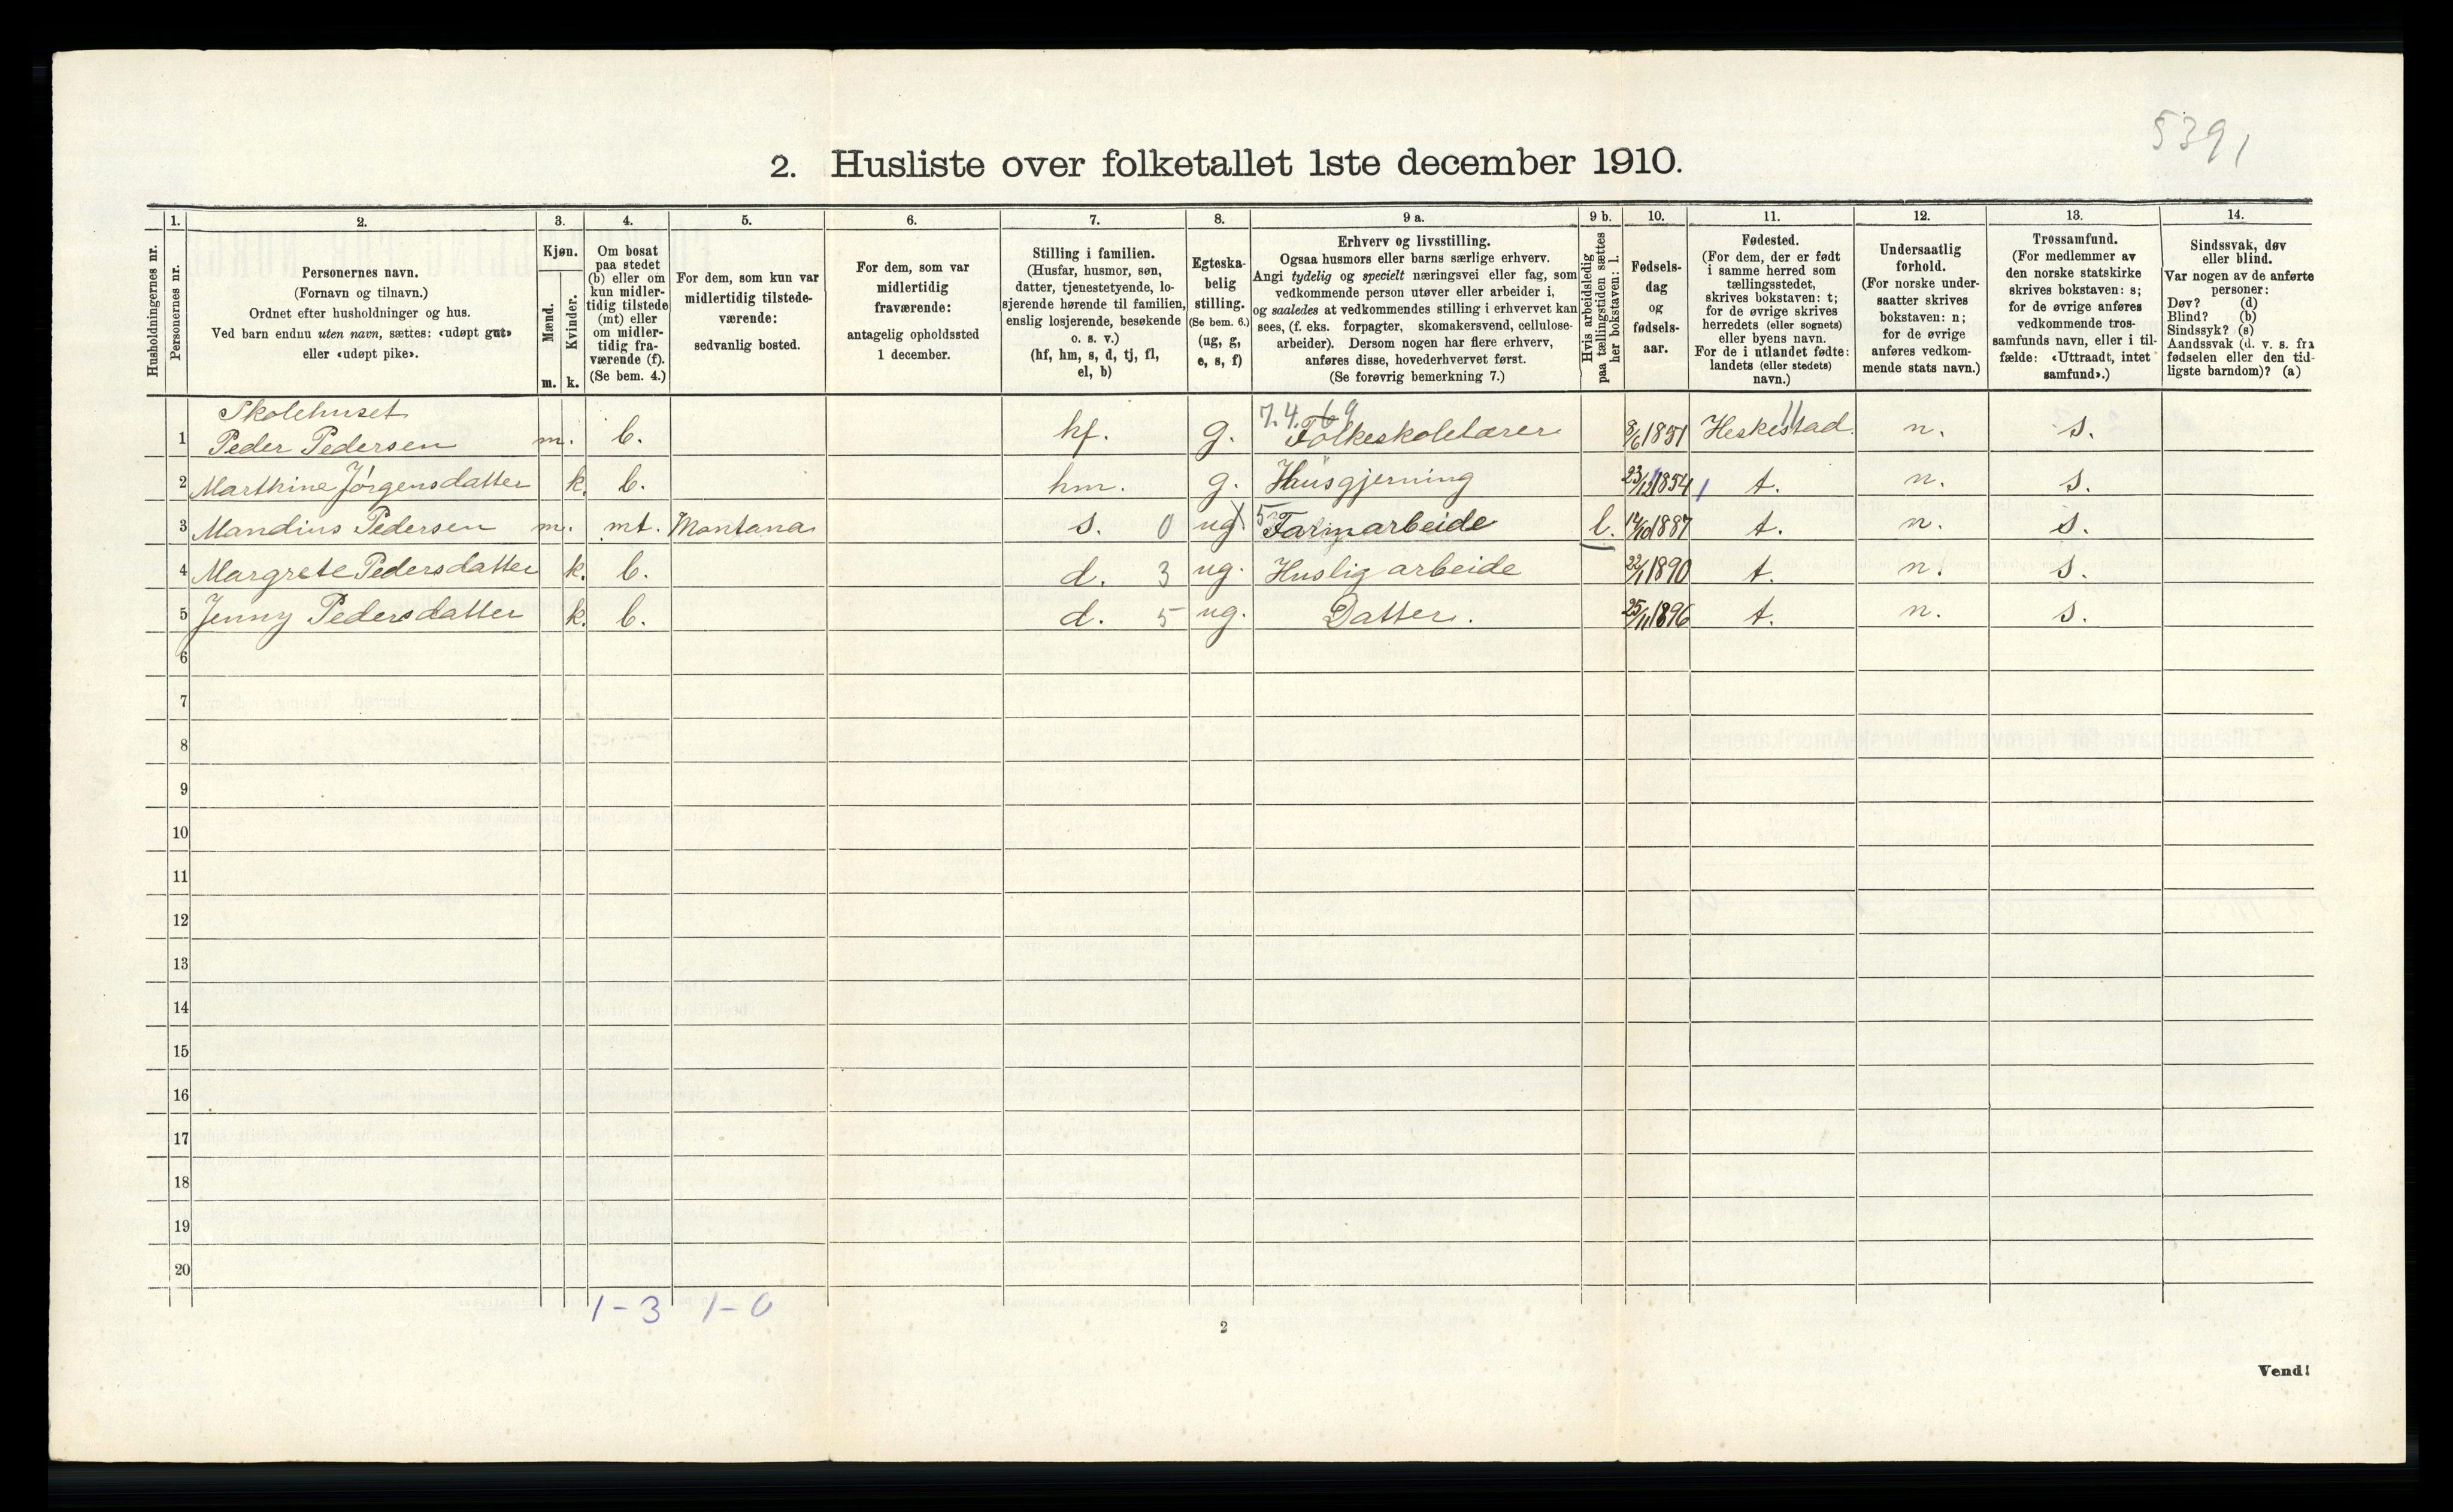 5391
2. Husliste over folketallet 1ste december 1910.
Husholdningernes nr.
1.
Personernes nr.
2.
Personernes navn.
(Fornavn og tilnavn.)
Ordnet efter husholdninger og hus.
Ved barn endnu uten navn, sættes: «udøpt gut»
eller «udøpt pike».
3.
Kjøn.
Mænd.
Kvinder.
m. k.
4.
Om bosat
paa stedet
(b) eller om
kun midler-
tidig tilstede
(mt) eller
om midler-
tidig fra-
værende (f).
(Se bem. 4.)
5.
For dem, som kun var
midlertidig tilstede-
værende:
sedvanlig bosted.
6.
For dem, som var
midlertidig
fraværende:
antagelig opholdssted
1 december.
7.
Stilling i familien.
(Husfar, husmor, søn,
datter, tjenestetyende, lo-
sjerende hørende til familien,
enslig losjerende, besøkende
o. s. v.)
(hf, hm, s, d, tj, fl,
el, b)
8.
Egteska-
belig
stilling.
(Se bem. 6.)
(ug, g,
e, s, f)
9 a.
Erhverv og livsstilling.
Ogsaa husmors eller barns særlige erhverv.
Angi tydelig og specielt næringsvei eller fag, som
vedkommende person utøver eller arbeider i,
og saaledes at vedkommendes stilling i erhvervet kan
sees, (f. eks. forpagter, skomakersvend, cellulose-
arbeider). Dersom nogen har flere erhverv,
anføres disse, hovederhvervet først.
(Se forøvrig bemerkning 7.)
9 b.
Hvis arbeidsledig
paa tællingstiden sættes
her bokstaven: l.
10.
Fødsels-
dag
og
fødsels-
aar.
11.
Fødested.
(For dem, der er født
i samme herred som
tællingsstedet,
skrives bokstaven: t;
for de øvrige skrives
herredets (eller sognets)
eller byens navn.
For de i utlandet fødte:
landets (eller stedets)
navn.)
12.
Undersaatlig
forhold.
(For norske under-
saatter skrives
bokstaven: n;
for de øvrige
anføres vedkom-
mende stats navn.)
13.
Trossamfund.
(For medlemmer av
den norske statskirke
skrives bokstaven: s;
for de øvrige anføres
vedkommende tros-
samfunds navn, eller i til-
fælde: «Uttraadt, intet
samfund».)
14.
Sindssvak, døv
eller blind.
Var nogen av de anførte
personer:
Døv? (d)
Blind? (b)
Sindssyk? (s)
Aandssvak (d. v. s. fra
fødselen eller den tid-
ligste barndom)? (a)
Skolehuset 7.4.69
1 Peder Pedersen m. b. hf. g. Folkeskolelærer 8/6 1851 Heskestad. 11 n. s.
2 Marthine Jörgensdatter k. b. hm. g. Husgjerning 23/12 1854 t. n. s.
3 Mandius Pedersen m. mt. Montana s. 0 ug. 5 Farmarbeide l. 14/10 1887 t. n. s.
4 Margrete Pedersdatter k. b. d. 3 ug. Huslig arbeide 22/1 1890 t. n. s.
5 Jenny Pedersdatter k. b. d. 5 ug. Datter. 25/11 1896 t. n. s.
6
7
8
9
10
11
12
13
14
15
16
17
18
19
20
1-3 1-0
2
Vend!